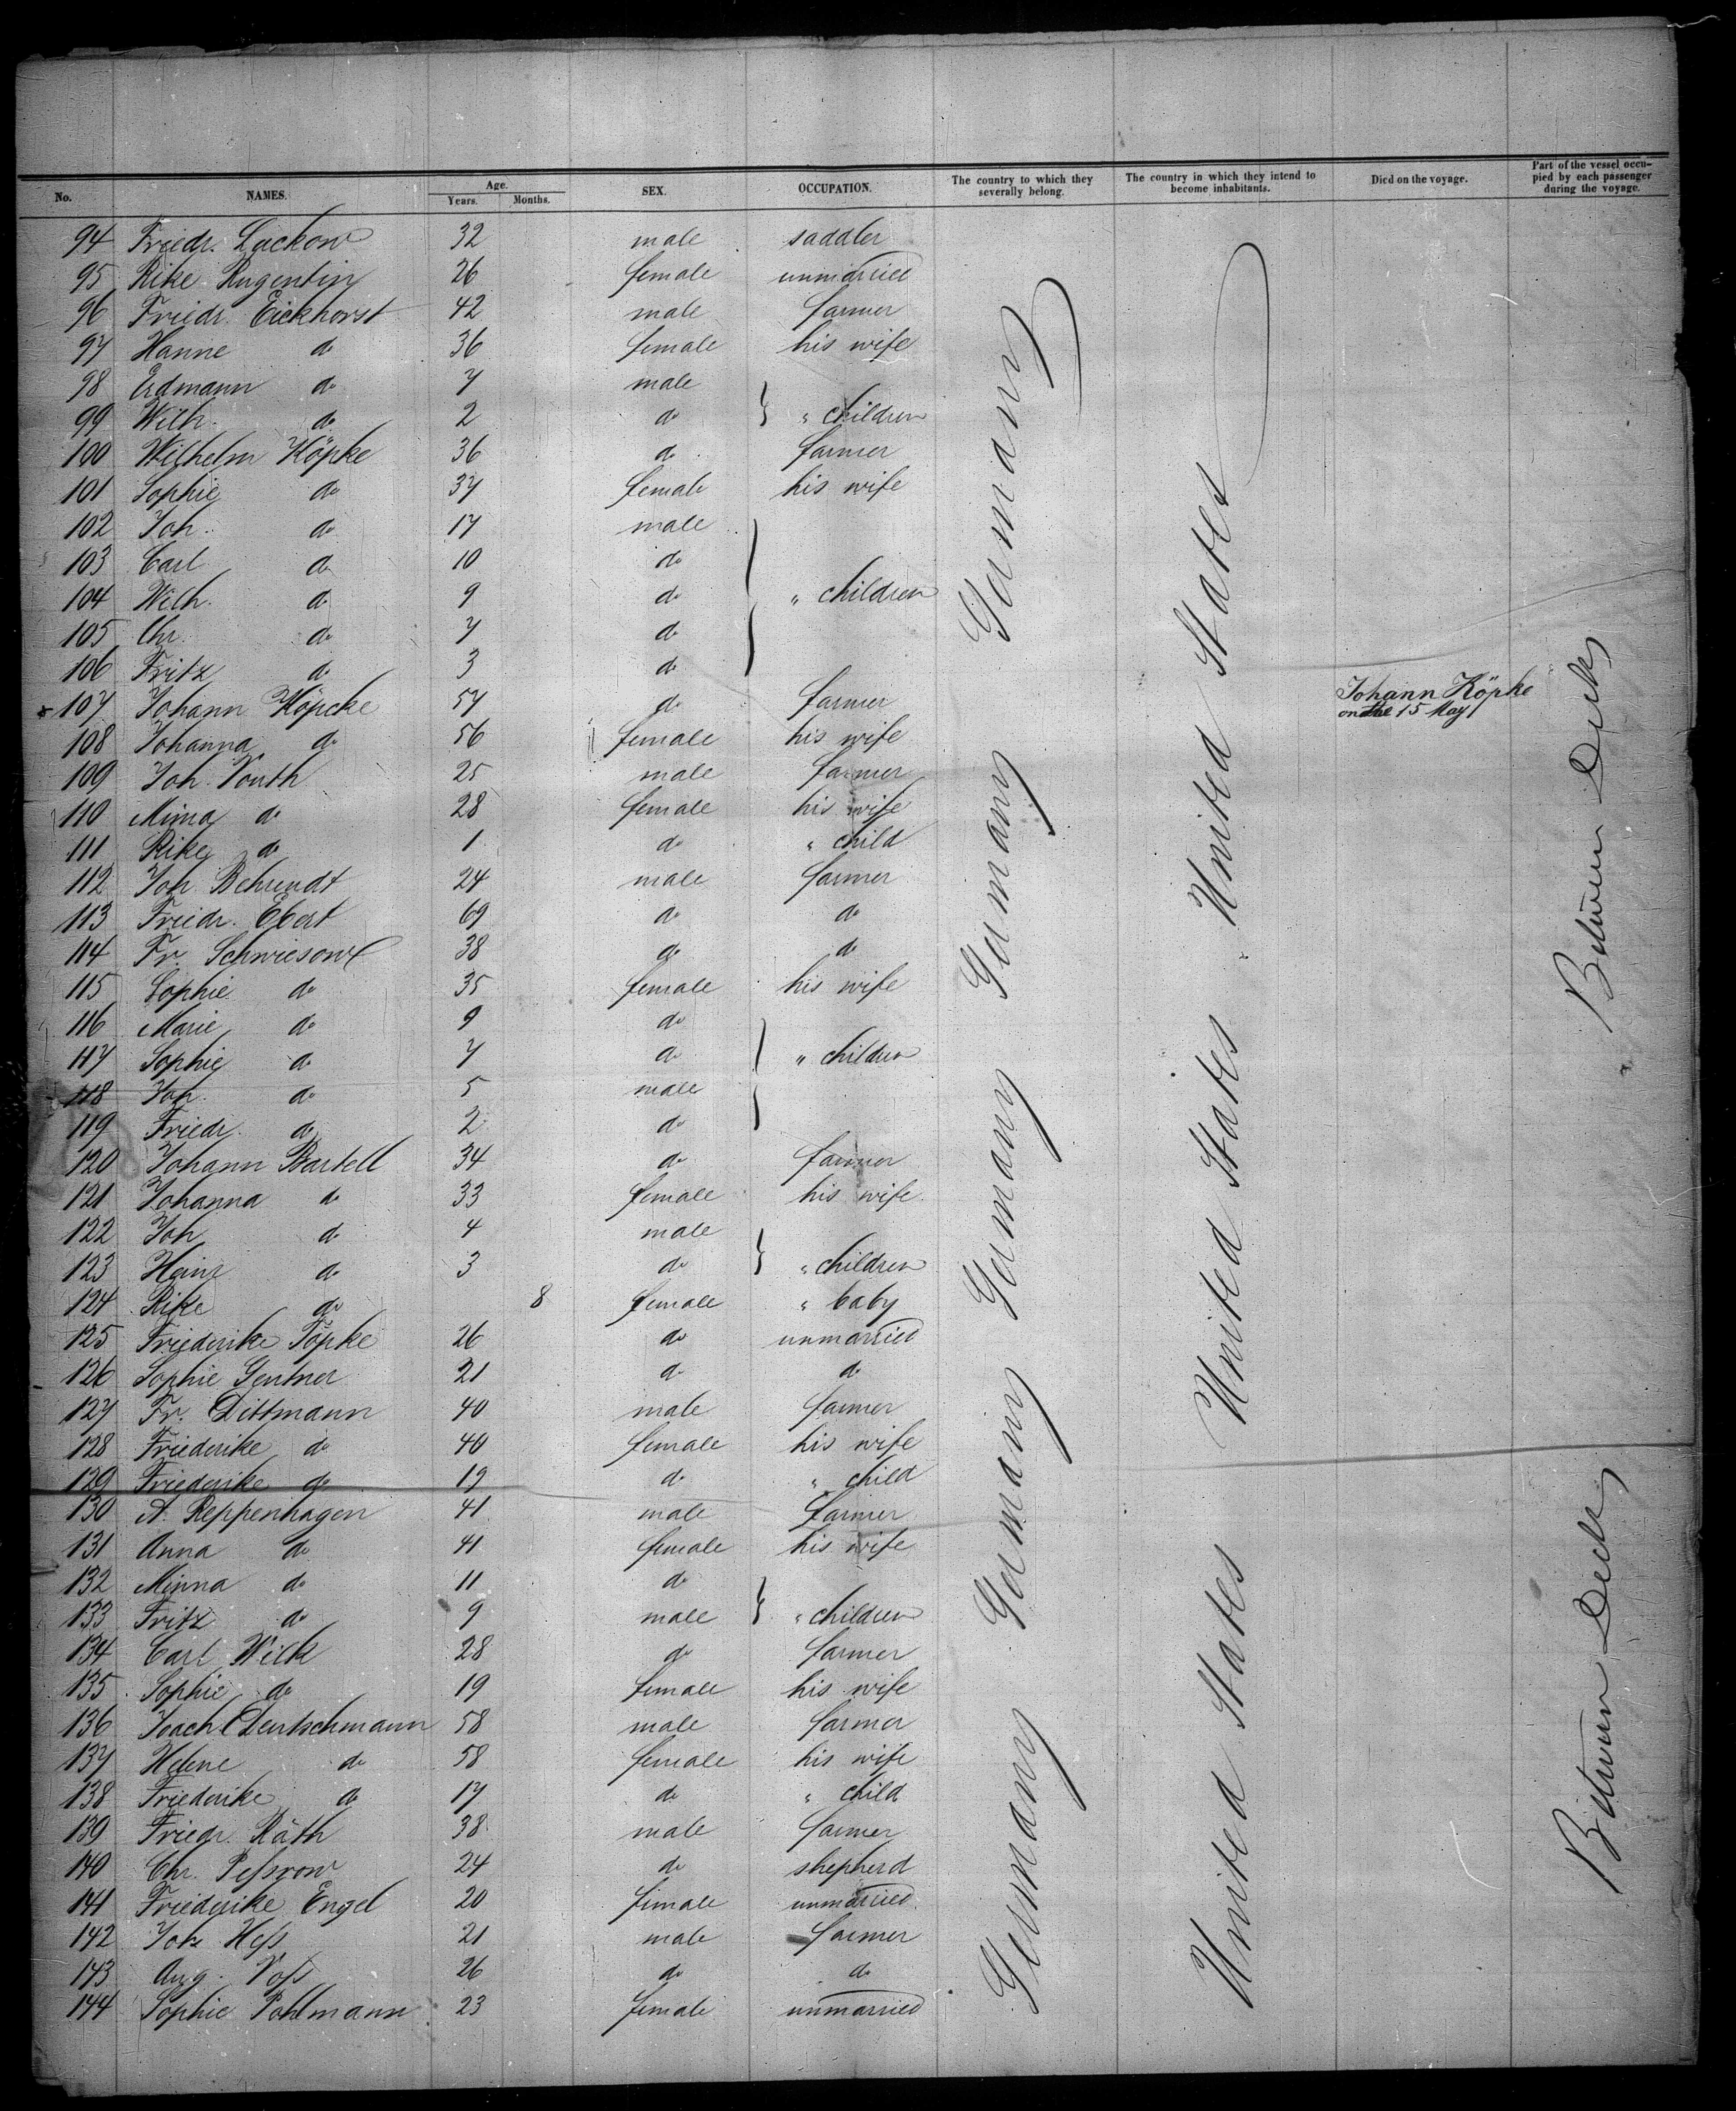 No. NAMES. Age. Years. Months. SEX. OCCUPATION. The country to which they severally belong. The country in which they intend to become inhabitants. Died on the voyage. Part of the vessel occu-pied by each passenger during the voyage.
94 Friedr. Lückow 32 male saddler
95 Rike Rugentin 26 female unmarried
96 Friedr. Eickhorst 42 male farmer
97 Hanne do 36 female his wife
98 Erdmann do 7 male
99 Wilh. do 2 do " children
100 Wilhelm Köpke 36 do farmer
101 Sophie do 37 female his wife
102 Joh. do 17 male
103 Carl do 10 do
104 Wilh. do 9 do " children
105 Chr. do 7 do
106 Fritz do 3 do
107 Johann Köpcke 57 do farmer Johann Köpke on the 15 May
108 Johanna do 56 female his wife
109 Joh. Vouth 25 male farmer
110 Mina do 28 female his wife
111 Rike do 1 do " child
112 Joh. Behrendt 24 male farmer
113 Friedr. Ebert 69 do do
114 Fr. Schwiesow 38 do do
115 Sophie do 35 female his wife
116 Marie do 9 do
117 Sophie do 7 do " children
118 Joh. do 5 male
119 Friedr. do 2 do
120 Johann Bartell 34 do farmer
121 Johanna do 33 female his wife
122 Joh do 4 male
123 Heinr do 3 do " children
124 Rike do 8 female " baby
125 Friederike Töpke 26 do unmarried
126 Sophie Gentner 21 do do
127 Fr. Dittmann 40 male farmer
128 Friederike do 40 female his wife
129 Friederike do 19 do " child
130 A. Reppenhagen 41 male farmer
131 Anna do 41 female his wife
132 Minna do 11 do
133 Fritz do 9 male " children
134 Carl Wilk 28 do farmer
135 Sophie do 19 female his wife
136 Joach Deutschmann 58 male farmer
137 Helene do 58 female his wife
138 Friederike do 17 do " child
139 Friedr. Räth 38 male farmer
140 Chr. Peßrow 24 do shepherd
141 Friederike Engel 20 female unmarried
142 Joh Heß 21 male farmer
143 Aug. Voß 26 do do
144 Sophie Pohlmann 23 female unmarried
Germany
Germany
Germany
Germany
Germany
United States
United States
United States
Between Decks
Between Decks